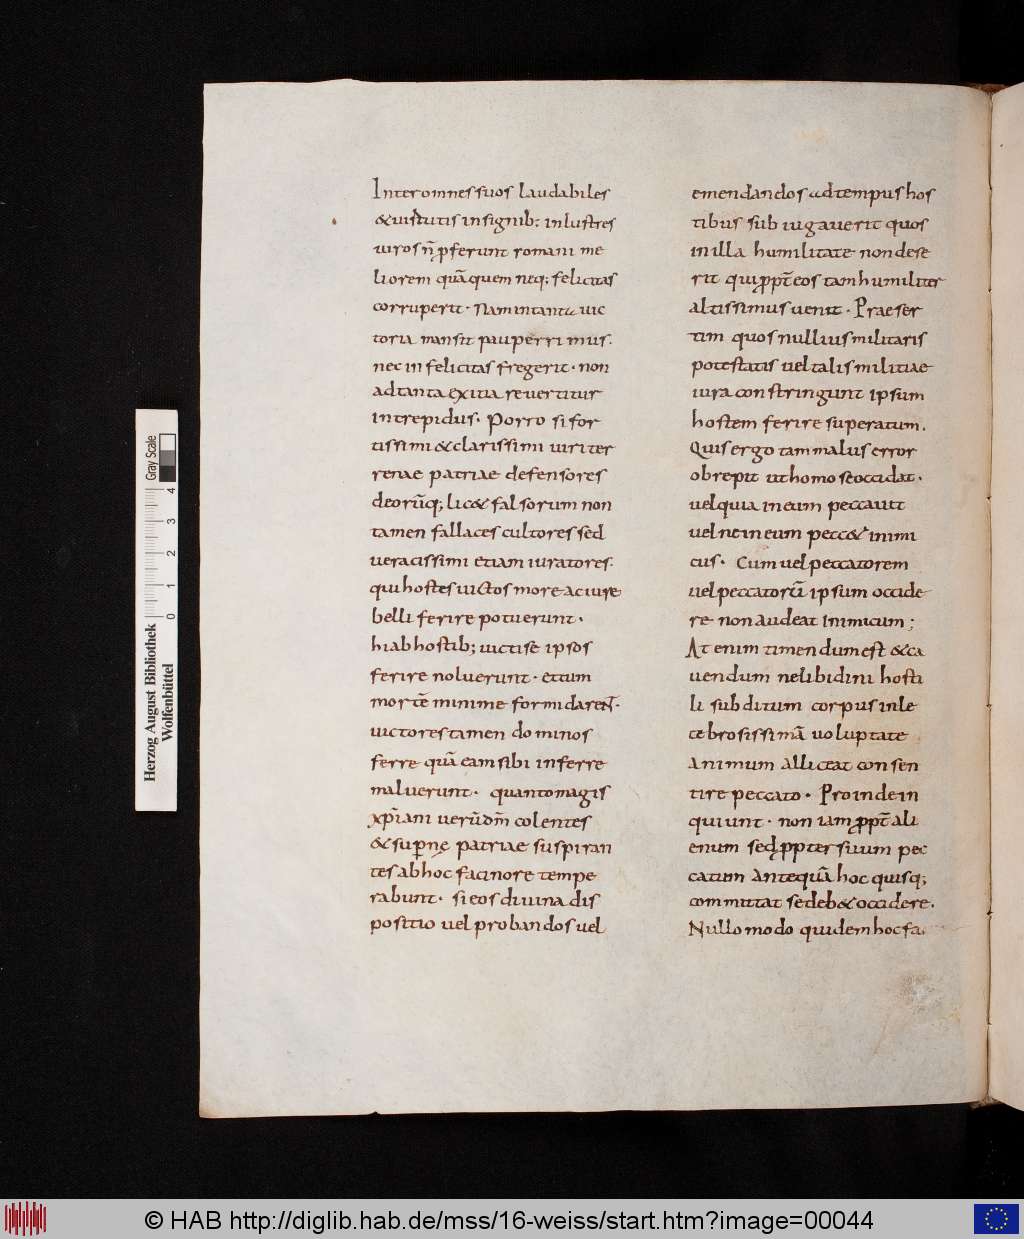 Interomnes suos laudabiles
&uirtutis insignib; inlustres
uiros ñ pferunt romani me
liorem quā quem neq; felicitas
corruperit · Nam intanta uic
toria mansit pauperrimus.
nec infelicitas fregerit · non
ad tanta exitia reuertitur
intrepidus. Porro si for
tissimi & clarissimi uiri ter
renae patriae defensores
deorūq; lic& falsorum non
tamen fallaces cultores sed
ueracissimi etiam iuratores.
qui hostes uictos more ac iure
belli ferire potuerunt ·
hi ab hostib; uicti se ipsos
ferire noluerunt · etcum
mortē minime formidarent ·
uictores tamen dominos
ferre quā eam sibi inferre
maluerunt · quanto magis
xp̄iani uerū dm̄ colentes
& supnę patriae suspiran
tes ab hoc facinore tempe
rabunt · si eos diuina dis
positio uel probandos uel
emendandos ad tempus hos
tibus subiugauerit quos
in illa humilitate non dese
rit qui ppt̄ eos tam humiliter
altissimus uenit · Praeser
tim quos nullius militaris
potestatis uel talis militiae
iura constringunt ipsum
hostem ferire superatum.
Quis ergo tam malus error
obrepit ut homo se occidat ·
uel quia in eum peccauit
uel ne in eum pecc& inimi
cus · Cum uel peccatorem
uel peccaturū ipsum occide
re non audeat inimicum ;
At enim timendum est & ca
uendum ne libidini hosti
li subditum corpus inle
cebrosissimā uoluptate
animum alliceat consen
tire peccato · Proinde in
quiunt · non iam ppt̄ ali
enum sed ppter suum pec
catum antequā hoc quisq;
committat se deb& occidere.
Nullo modo quidem hoc fa
Herzog August Bibliothek
Wolfenbüttel
0 1 2 3 4
Gray Scale
© HAB http://diglib.hab.de/mss/16-weiss/start.htm?image=00044